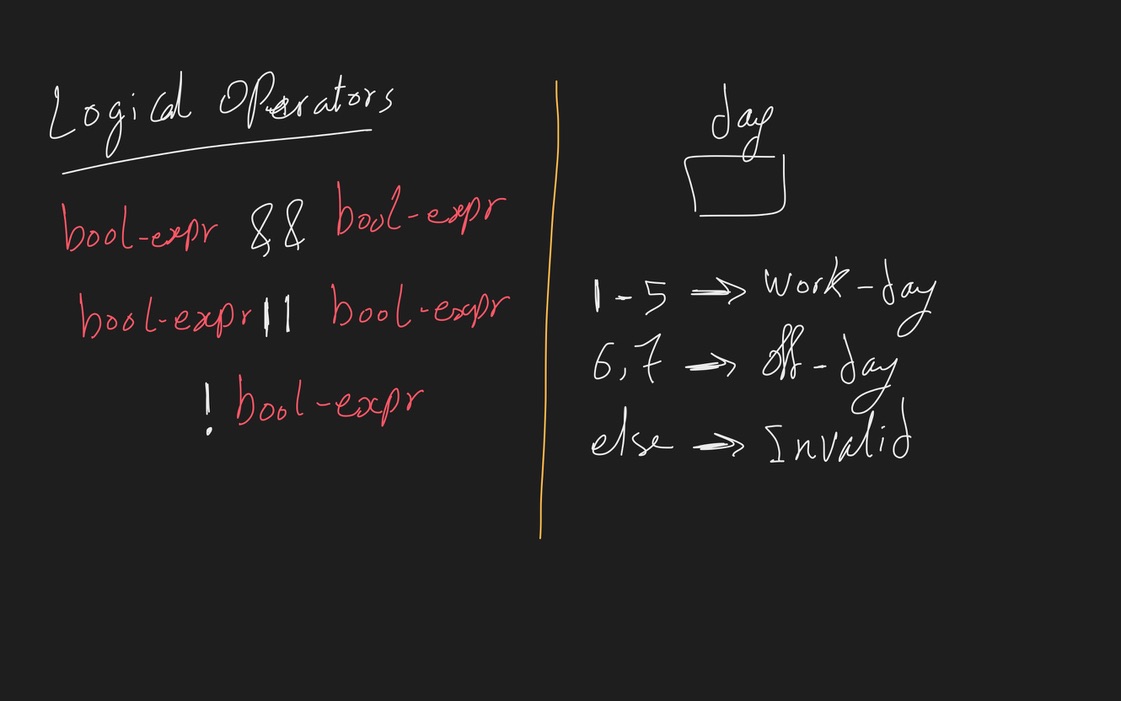 Logical Operators
bool-expr && bool-expr
bool-expr || bool-expr
! bool-expr
day
1-5 => work-day
6,7 => off-day
else => Invalid